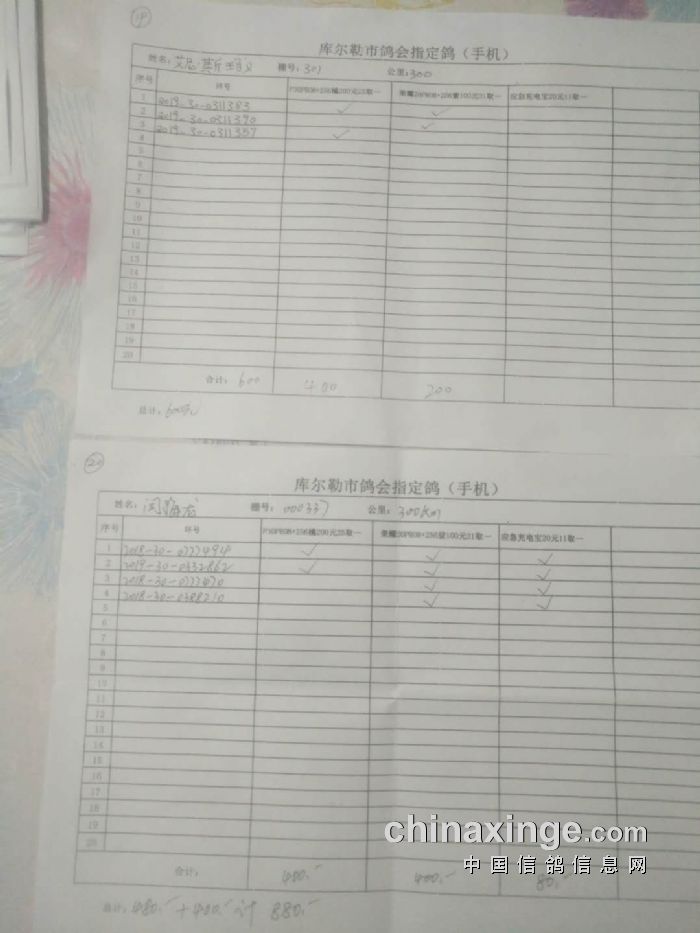 19
库尔勒市鸽会指定鸽（手机）
姓名： 棚号：301 公里：300
序号 环号 P30PROM+256桶200元25取一 荣耀20PROM+256蒙100元21取一 应急充电宝20元11取一
1 2019-30-0311383 ✓
2 2019-30-0311390 ✓
3 2019-30-0311357 ✓ ✓
4
5
6
7
8
9
10
11
12
13
14
15
16
17
18
19
20
合计：600 400 200
总计：600元
20
库尔勒市鸽会指定鸽（手机）
姓名：闵海龙 棚号：000337 公里：300km
序号 环号 200元25取一 100元21取一 应急充电宝20元11取一
1 2018-30-0777494 ✓ ✓ ✓
2 2019-30-0332862 ✓ ✓ ✓
3 2018-30-0777470 ✓ ✓
4 2018-30-0388210 ✓ ✓
5
6
7
8
9
10
11
12
13
14
15
16
17
18
19
20
合计： 400.- 400.- 80.-
总计：480.- + 400.- 计 880.-
chinaxinge.com
中国信鸽信息网